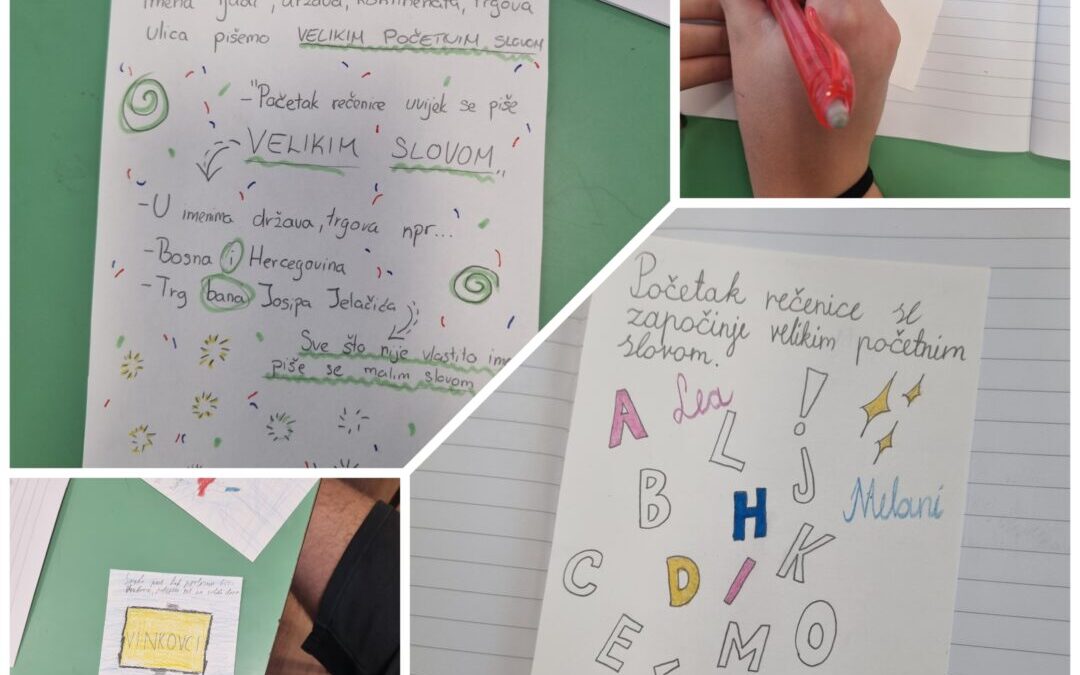 imena ljudi, država, kontinenata, trgova
ulica pišemo VELIKIM POČETNIM SLOVOM
-"Početak rečenice uvijek se piše
VELIKIM SLOVOM"
-U imenima država, trgova npr...
-Bosna i Hercegovina
-Trg bana Josipa Jelačića
Sve što nije vlastito ime
piše se malim slovom
VINKOVCI
Početak rečenice se
započinje velikim početnim
slovom.
A Lea L !
B H J Melani
C D I K
E M O